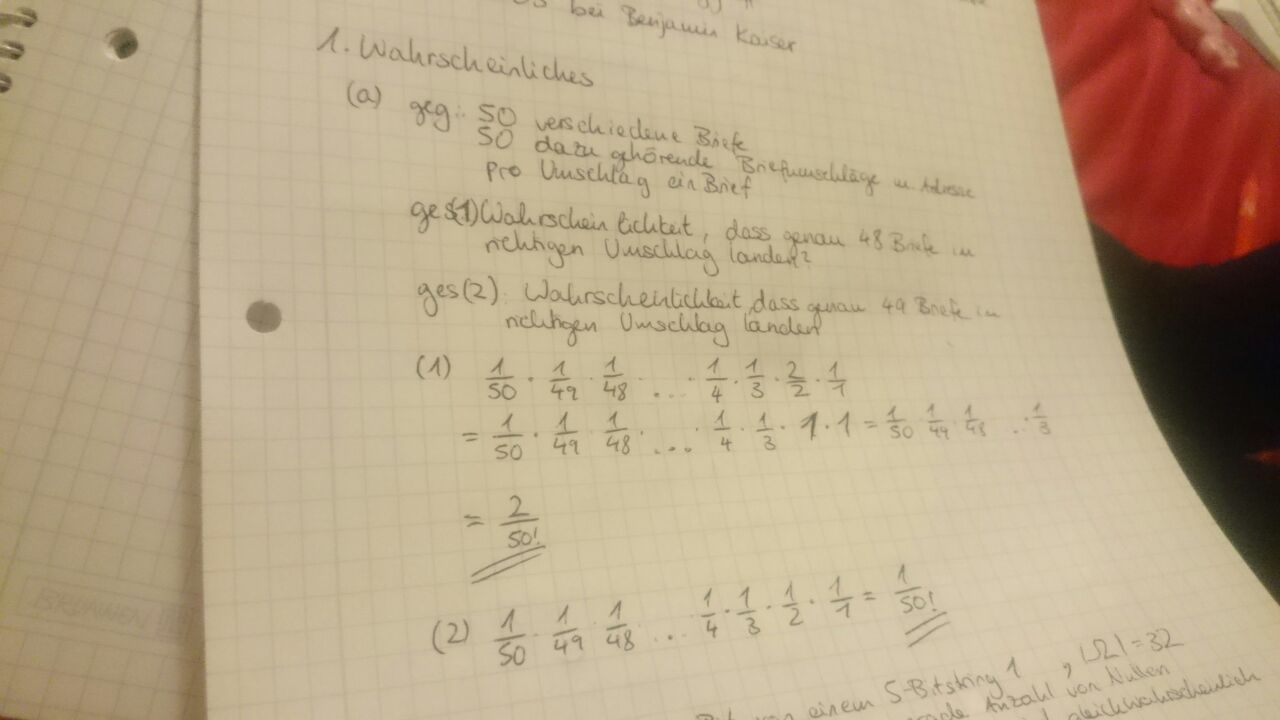 bei Benjamin Kaiser
1. Wahrscheinliches
(a) geg: 50 verschiedene Briefe
50 dazu gehörende Briefumschläge m Adresse
pro Umschlag ein Brief
ges(1) Wahrscheinlichkeit, dass genau 48 Briefe im
richtigen Umschlag landen?
ges(2): Wahrscheinlichkeit, dass genau 49 Briefe im
richtigen Umschlag landen
(1) 1/50 · 1/49 · 1/48 · ... · 1/4 · 1/3 · 2/2 · 1/1
= 1/50 · 1/49 · 1/48 · ... 1/4 · 1/3 · 1 · 1 = 1/50 · 1/49 · 1/48 ... 1/3
= 2/50!
(2) 1/50 · 1/49 · 1/48 ... 1/4 · 1/3 · 1/2 · 1/1 = 1/50!
von einem 5-Bitstring 1 , |Ω| = 32
Anzahl von Nullen
gleichwahrscheinlich